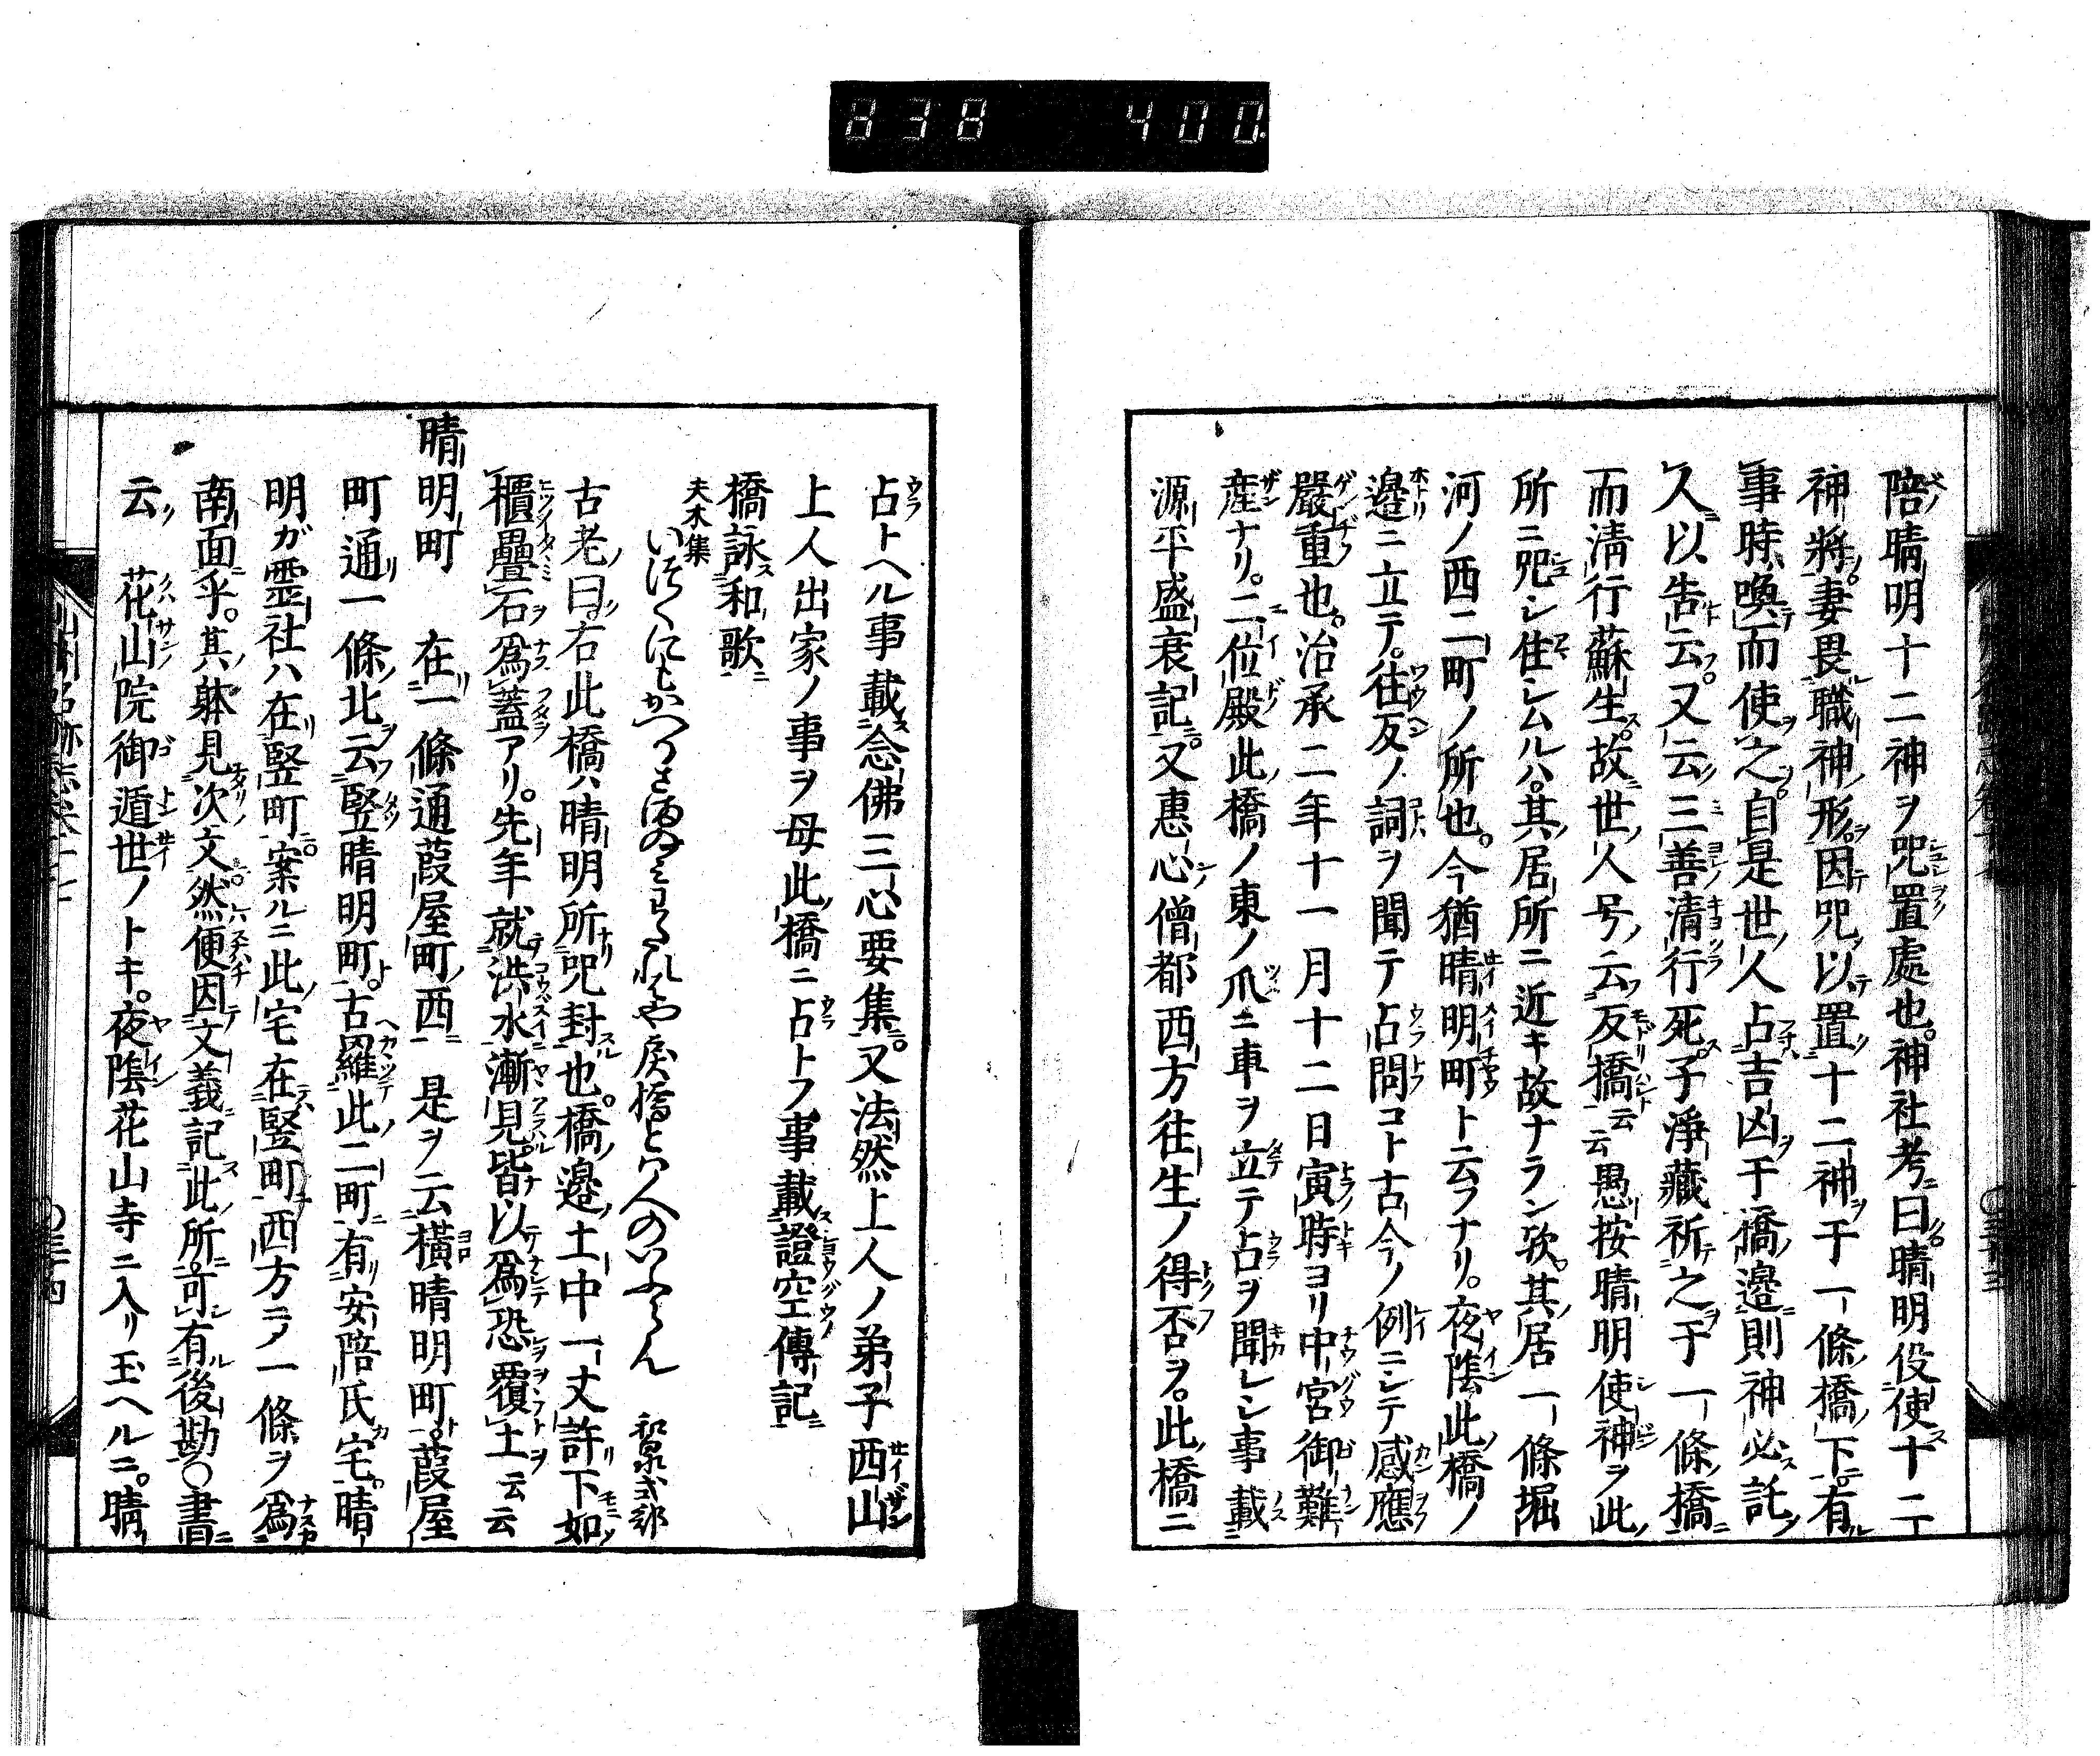 838 400
陪晴明十二神ヲ咒置處也。神社考ニ曰晴明役使十二
神將。妻畏職神ノ形。因咒以置十二神ヲ于一條橋ノ下。有
事時、喚而使之。自是世人占吉凶于橋邊則神必託
人以告云。又云三善清行死。子淨藏祈之于一條橋
而清行蘇生。故世人号云反橋云云愚按晴明使神ヲ此
所ニ咒シ住シムルハ。其居所ニ近キ故ナラン欤。其居一條堀
河ノ西二町ノ所也。今猶晴明町ト云フナリ。夜陰此橋ノ
邉ニ立テ。往反ノ詞ヲ聞テ占問コト古今ノ例ニシテ感應
嚴重也。治承二年十一月十二日寅時ヨリ中宮御難
産ナリ。二位殿此橋ノ東ノ爪ニ車ヲ立テ占ヲ聞レシ事載
源平盛衰記ニ。又惠心僧都西方往生ノ得否ヲ。此橋ニ
占トヘル事載念佛三心要集ニ。又法然上人ノ弟子西山
上人出家ノ事ヲ母此橋ニ占トフ事載證空傳記ニ
橋詠和歌ニ
夫木集
いつくにもかへるさまのみわたれはや戻橋とハ人のいふらん 和泉式部
古老ノ曰右此橋ハ晴明所咒封也。橋ノ邉土中一丈許下如
櫃疊石爲蓋アリ。先年就洪水漸見。皆以爲恐覆土云云
晴明町 在一條通葭屋町ノ西ニ 是ヲ云横晴明町ト。葭屋
町通一條ノ北ヲ云竪晴明町ト。古羅此二町ニ有安陪氏宅。晴
明ガ霊社ハ在竪町ニ。案ルニ此宅在竪町西方ニノ一條ヲ爲
南面乎。其躰見次ノ文ニ。然便因文義ニ記此所ニ。可有後勘〇書ニ
云ノ 花山院御遁世ノトキ。夜陰花山寺ニ入リ玉ヘルニ。晴